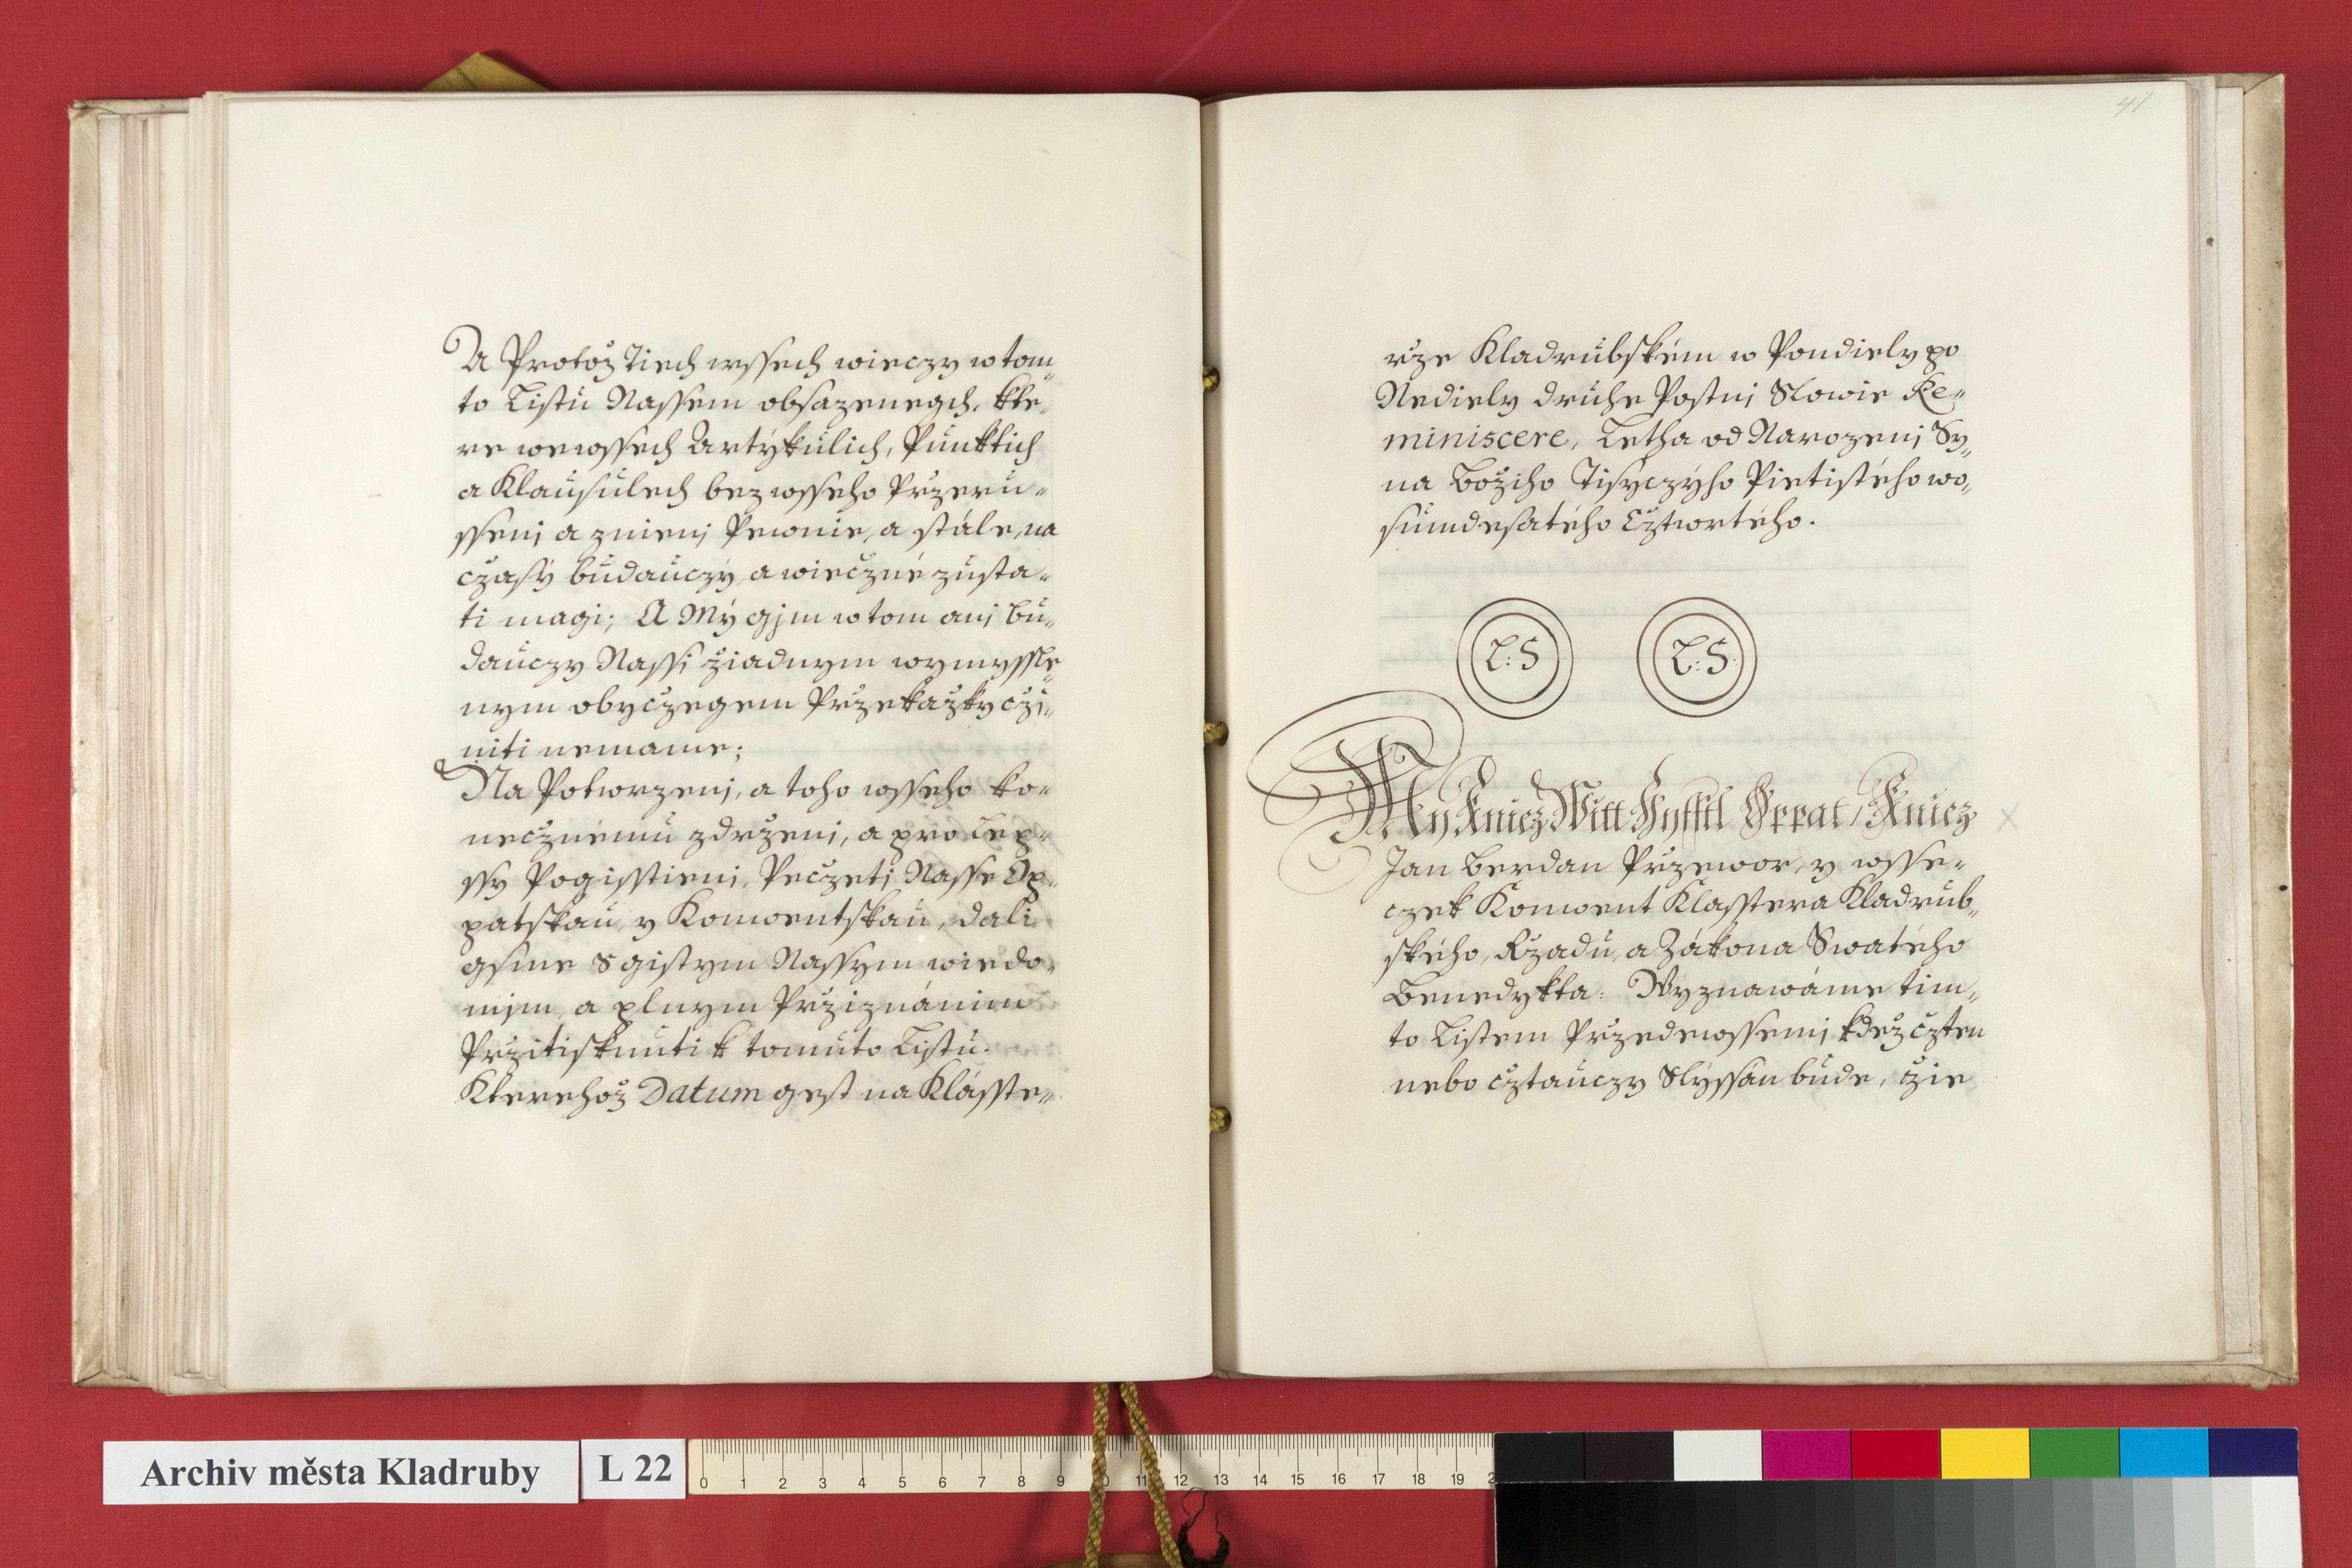 A Protož Tiech wssech wieczy w tom„
to Listu Nassem obsazenegch, kte„
re wewssech Artykulich, Punktich
a Klausulech bez wsseho Przeru„
sseni a znieni Pewnie, a stále, na
cžasy budauczy, a wiecžné zusta„
ti magi; A My gjm w tom ani bu„
dauczy Nassi žiadnym wymyssle„
nym obycžegem Pržekažky cži„
niti nemame;
Na Potwrzeni, a toho wsseho ko„
necžnému zdrženi, a pro lep„
ssy Pogisstieni, Pecžeti Nasse Op„
patskau, y Konwentskau, dali
gsme S gistym Nassym wiedo„
mjm, a plnym Pržiznánim
Pržitisknuti k tomuto Listu.
Kterehož Datum gest na Klásste„
41
rže Kladrubském w Pondiely po
Nediely druhe Postni Slowie Re„
miniscere, Letha od Narozeni Sy„
na Božiho Tisyczyho Pietistého wo„
sumdesatého Cžtwrtého.
L:S L:S:
My Kniez Witt Hyfftl Oppat, Kniez
Jan Berdan Przewor, y wsse„
czek Konwent Klasstera Kladrub„
ského, Ržadu, a Zákona Swatého
Benedykta: Wyznawáme tim„
to Listem Pržedewssemi kdež cžten
nebo cžtauczy Slyssan bude, žie
Archiv města Kladruby L 22
0 1 2 3 4 5 6 7 8 9 10 11 12 13 14 15 16 17 18 19 2